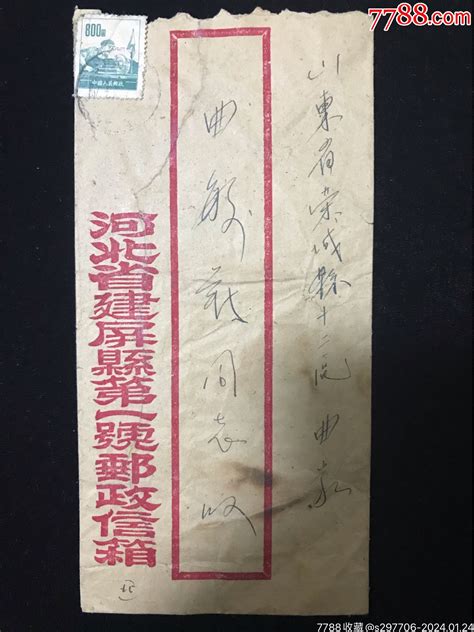 7788.com
800圆
中國人民郵政
山東省榮城縣十二區曲家
曲毅義同志收
河北省建屏縣第一號郵政信箱
7788收藏@s297706-2024.01.24